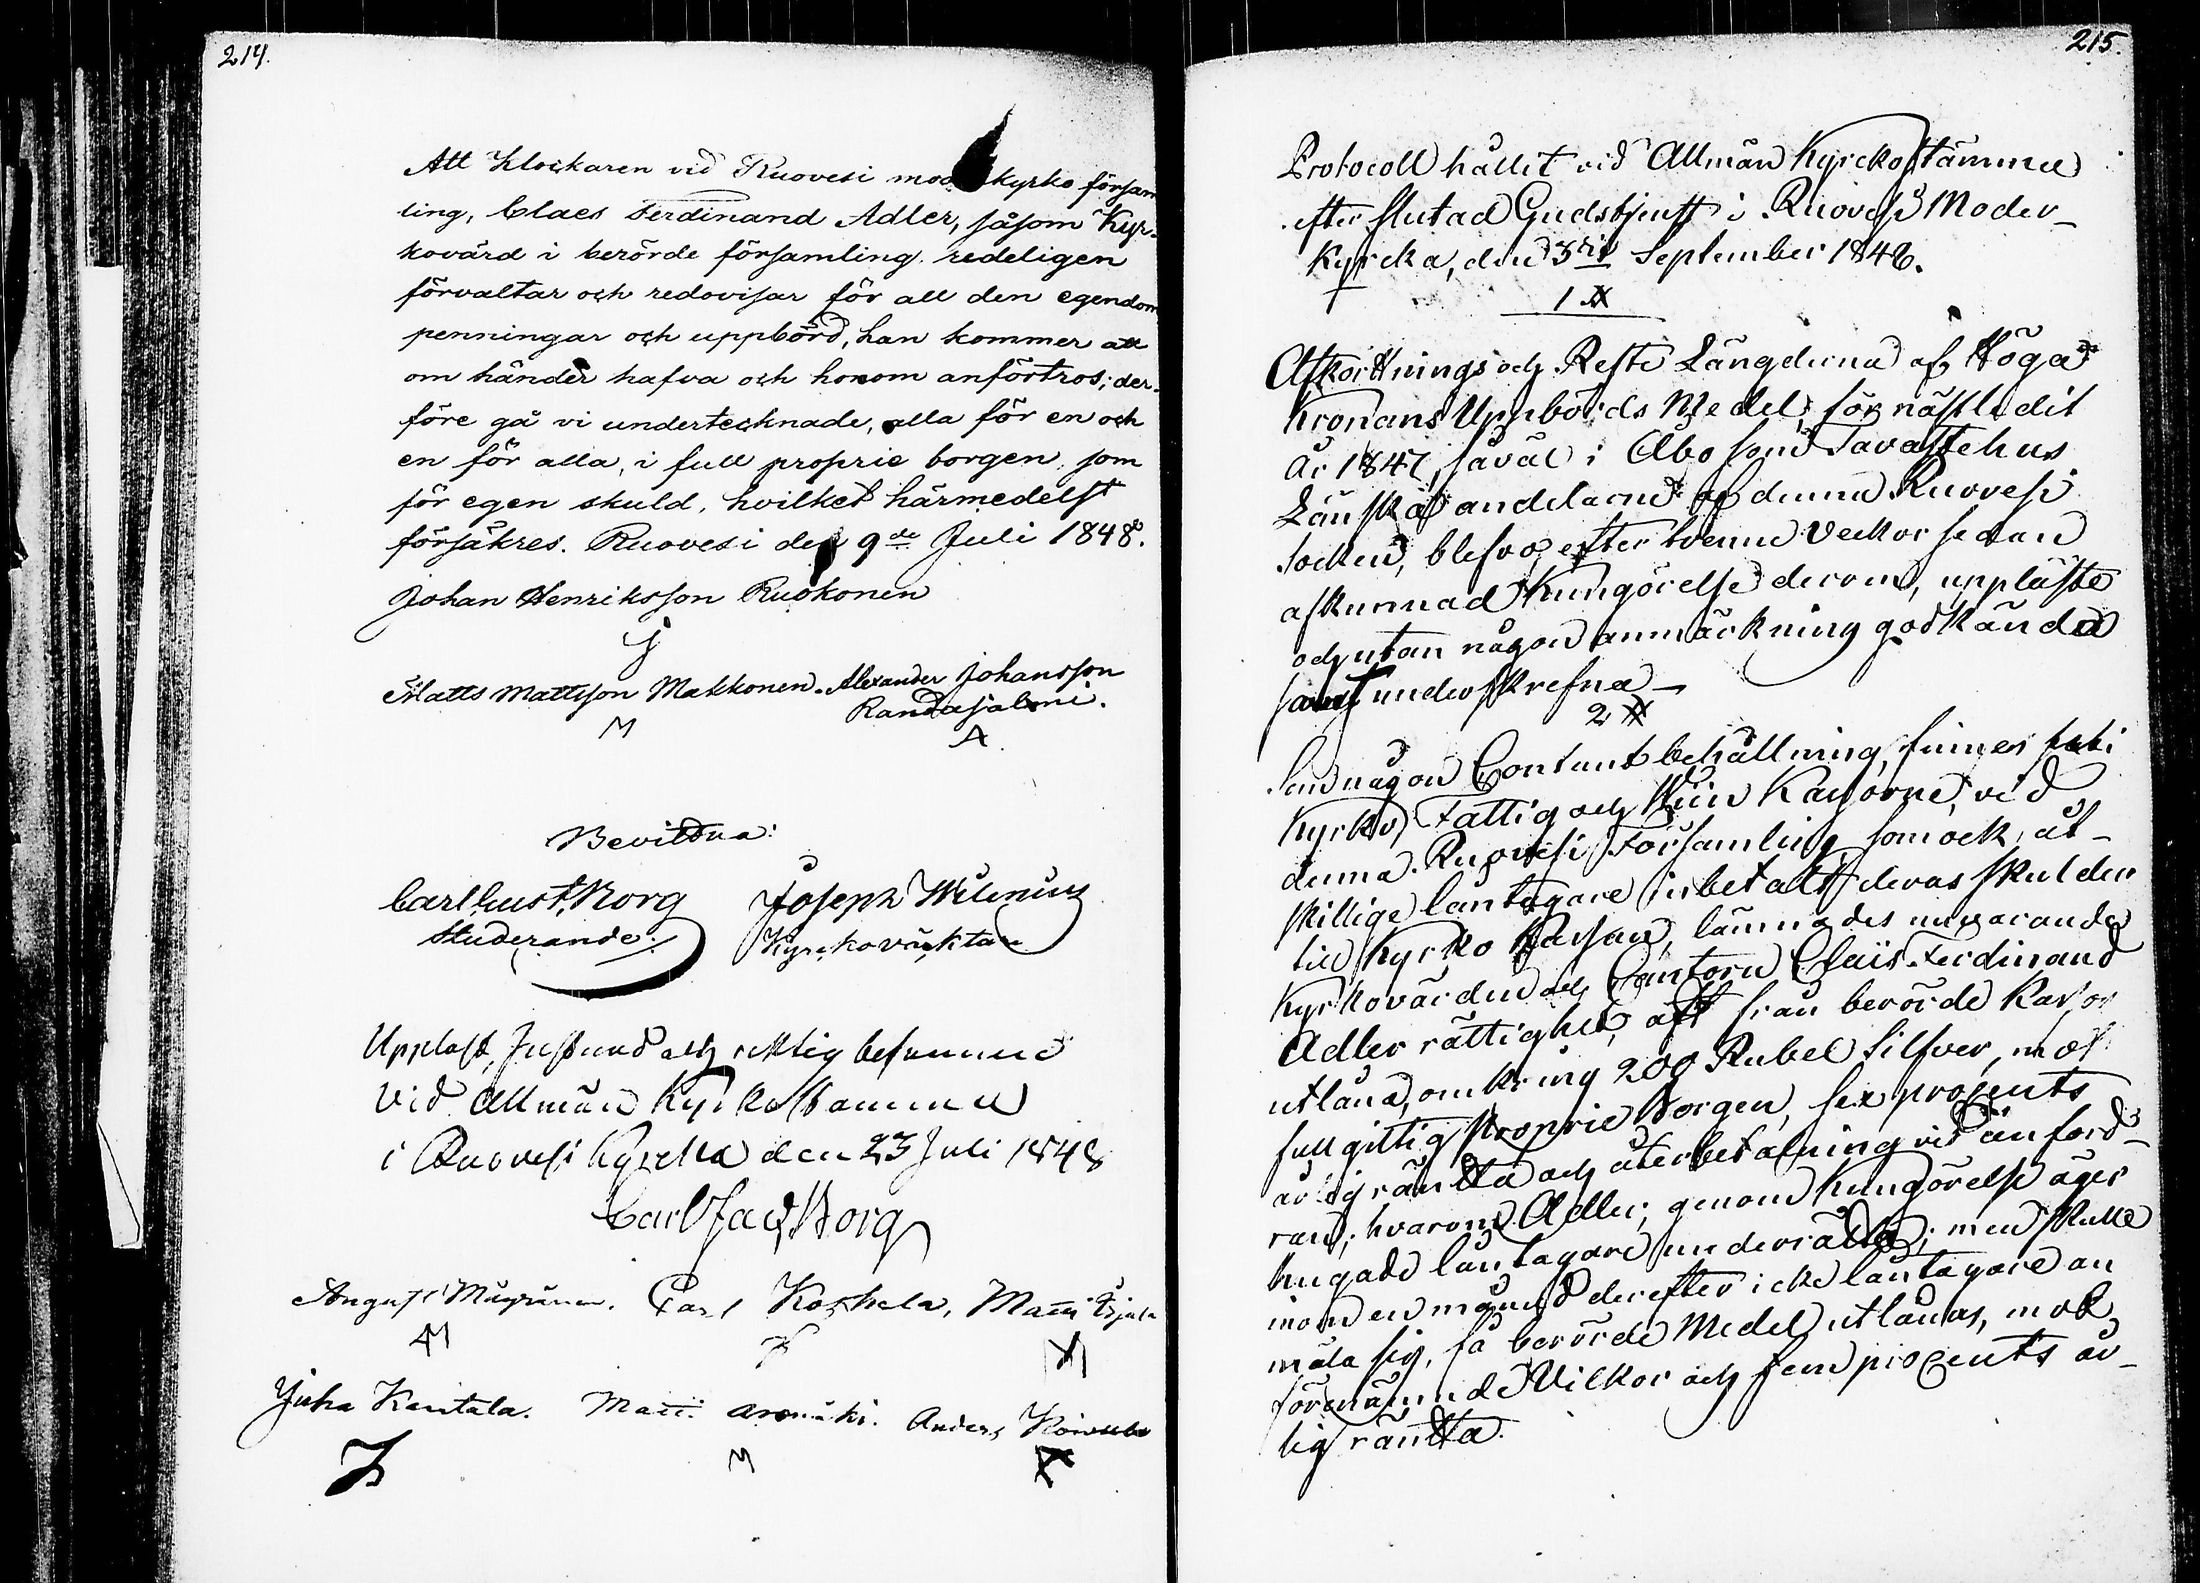 214.
Att Klockaren vid Ruovesi mod kyrko försam
ling, Claes Ferdinand Adler, såsom Kyr-
kovärd i berörde församling redeligen
förvaltar och redovisar för all den egendom
penningar och uppbörd, han kommer att
om händer hafva och honom anförtros; der-
före gå vi undertecknade, alla för en och
en för alla, i full proprie borgen som
för egen skuld, hvilket härmedelst
försäkres. Ruovesi den 9de Juli 1848.
Johan Henriksson Ruokonen
J
Matts Mattsson Makkonen. Alexander Johansson
Randasalmi.
M A.
Bevittna:
Carl Gust. Borg Joseph Wilenius
Studerande. Kyrckoväktare
Uppläst, Justerad och riktig befunnen
vid Allmän Kyrkostämma
i Ruovesi Kyrcka den 23 Juli 1848
Carl Jac. Borg
August Carl Koskela, Matti
AM K M
Juha Kantala. Matti Anders
J M A
215.
Protocoll hållit vid Allmän Kyrckostämma
efter slutad Gudstjenst i Ruovesi Moder-
Kyrcka, den 3die September 1848.
1 §
Afkortnings och Reste Längderna af Höga
Kronans Uppbörds Medel, för nästledit
år 1847, såväl i Åbo som Tavastehus
Länska andelarne af denna Ruovesi
Socken, blefvo, efter tvenne veckor sedan
afkunnad Kungörelse derom, uppläste
och utan någon anmärkning godkända
samt underskrefna
2 §
Som någon Contant behållning, finnes uti
Kyrko, Fattig och Kassorne, vid
denna Ruovesi Församling som ock åt-
skillige låntagare inbetalt deras skulder
till Kyrko Kassan, lämnades nuvarande
Kyrkovärden och Cantorn Claës Ferdinand
Adler rättighet, att från berörde Kassor
utlåna, omkring 200 Rubel Silfver, mot
fullgiltig Proprie Borgen, sex procents
årlig räntta och återbetalning vid anford-
ran; hvarom Adler, genom Kungörelse äger
hugade låntagare underrätta; men skulle
inom en månad derefter icke låntagare an
mäla sig, få berörde Medel utlånas, mot
förenämnde Vilkor och fem procents år-
lig räntta.